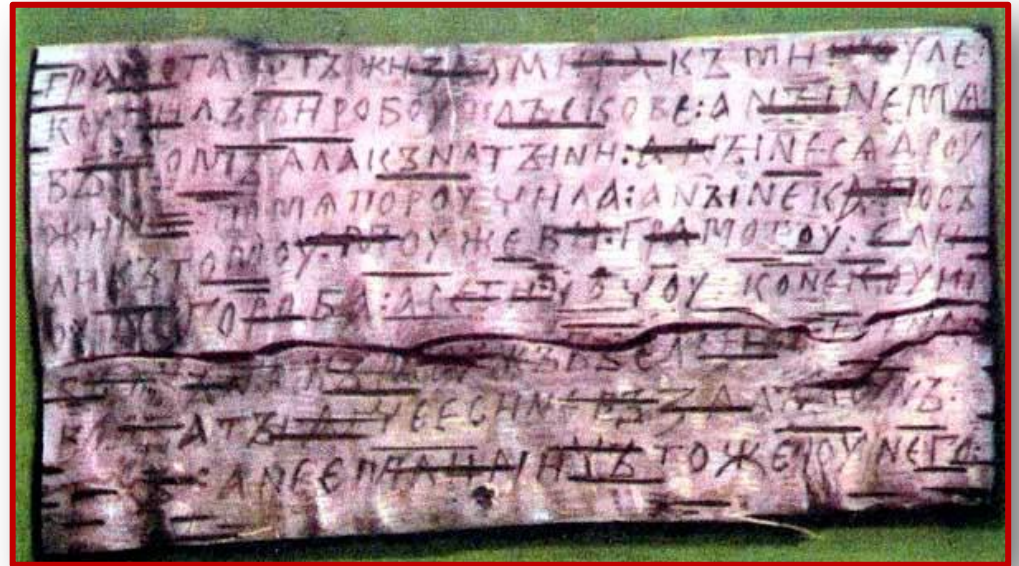 ГРАМОТА ѠТЪ ЖИЗНОМИРА КЪ МИКОУЛЕ:
КОУПИЛЪ ЕСИ РОБОУ ПЛЪСКОВЕ: А НЪІНЕ МѦ
ВЪ ТОМЪ ѦЛА КЪНѦГЪІНИ: А НЪІНЕ СѦ ДРОУ
ЖИНА ПО МѦ ПОРОУЧИЛА: А НЪІНЕ КА ПОСЪ
ЛИ КЪ ТОМОУ МОУЖЕВИ: ГРАМОТОУ: Е ЛИ
ОУ НЕГО РОБА: А СЕ ТИ ХОЧОУ: КОНЕ КОУПИ
КЪНѦЖЪ МОУЖЪ ВЪСАДИ
А ТЪІ АТЧЕ ЕСИ НЕ ВЪЗАЛЪ КОУНЪ:
ТЕХЪ: А НЕ ЕМЛИ НИЧЪТО ЖЕ ОУ НЕГО: